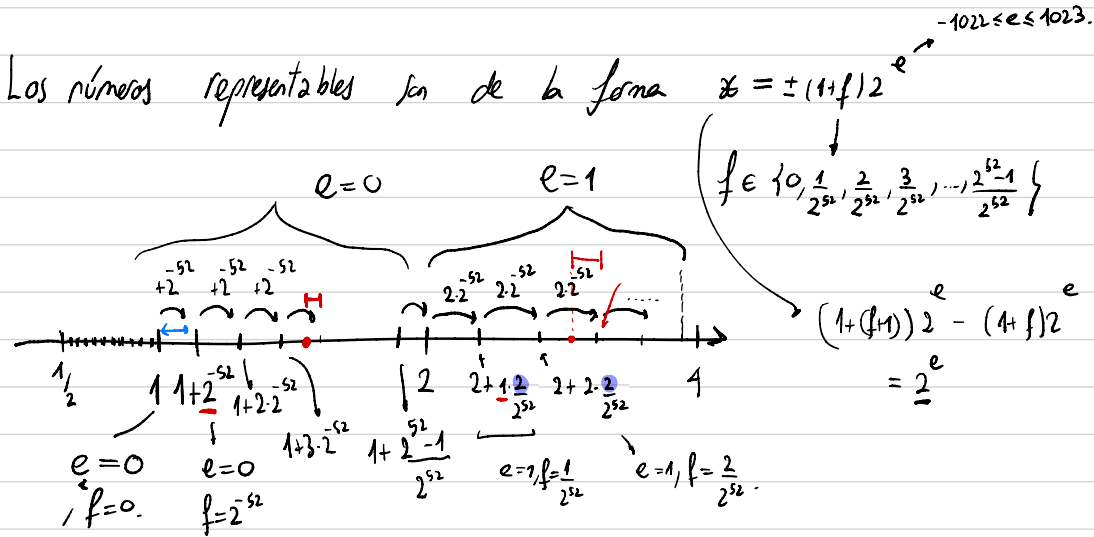 -1022 ≤ e ≤ 1023.
Los números representables son de la forma x = ±(1+f)2^e
f ∈ {0, 1/2^52, 2/2^52, 3/2^52, ..., 2^52-1/2^52}
e=0 e=1
+2^-52 +2^-52 +2^-52 2·2^-52 2·2^-52 2·2^-52 ......
(1+(f+1))2^e - (1+f)2^e
= 2^e
1/2 1 1+2^-52 1+2·2^-52 1+3·2^-52 1+ 2^52-1/2^52 2 2+1·2/2^52 2+2·2/2^52 4
e=0 e=0 e=1, f=1/2^52 e=1, f=2/2^52.
, f=0. f=2^-52